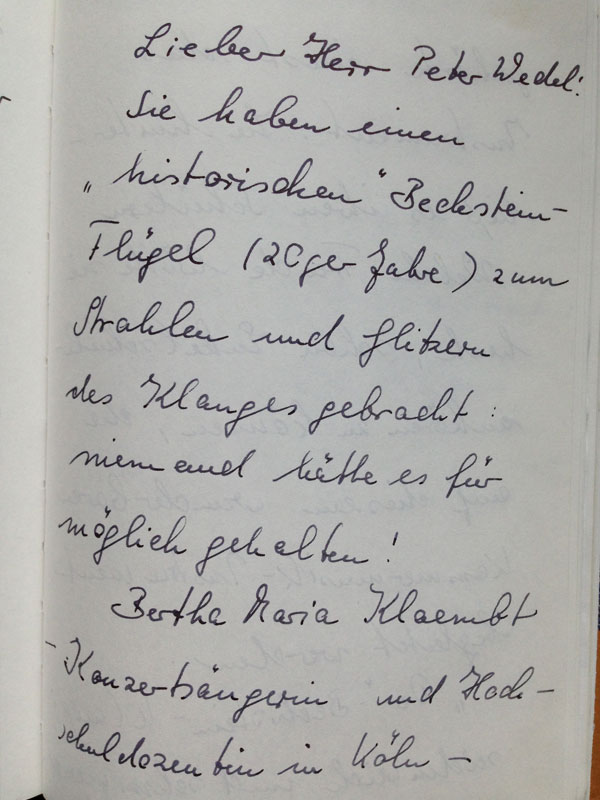 Lieber Herr Peter Wedel!
Sie haben einen
„historischen" Bechstein-
Flügel (20ger Jahre) zum
Strahlen und Glitzern
des Klanges gebracht:
niemand hätte es für
möglich gehalten!
Bertha Maria Klaembt
- Konzertsängerin und Hoch-
schuldozentin in Köln -